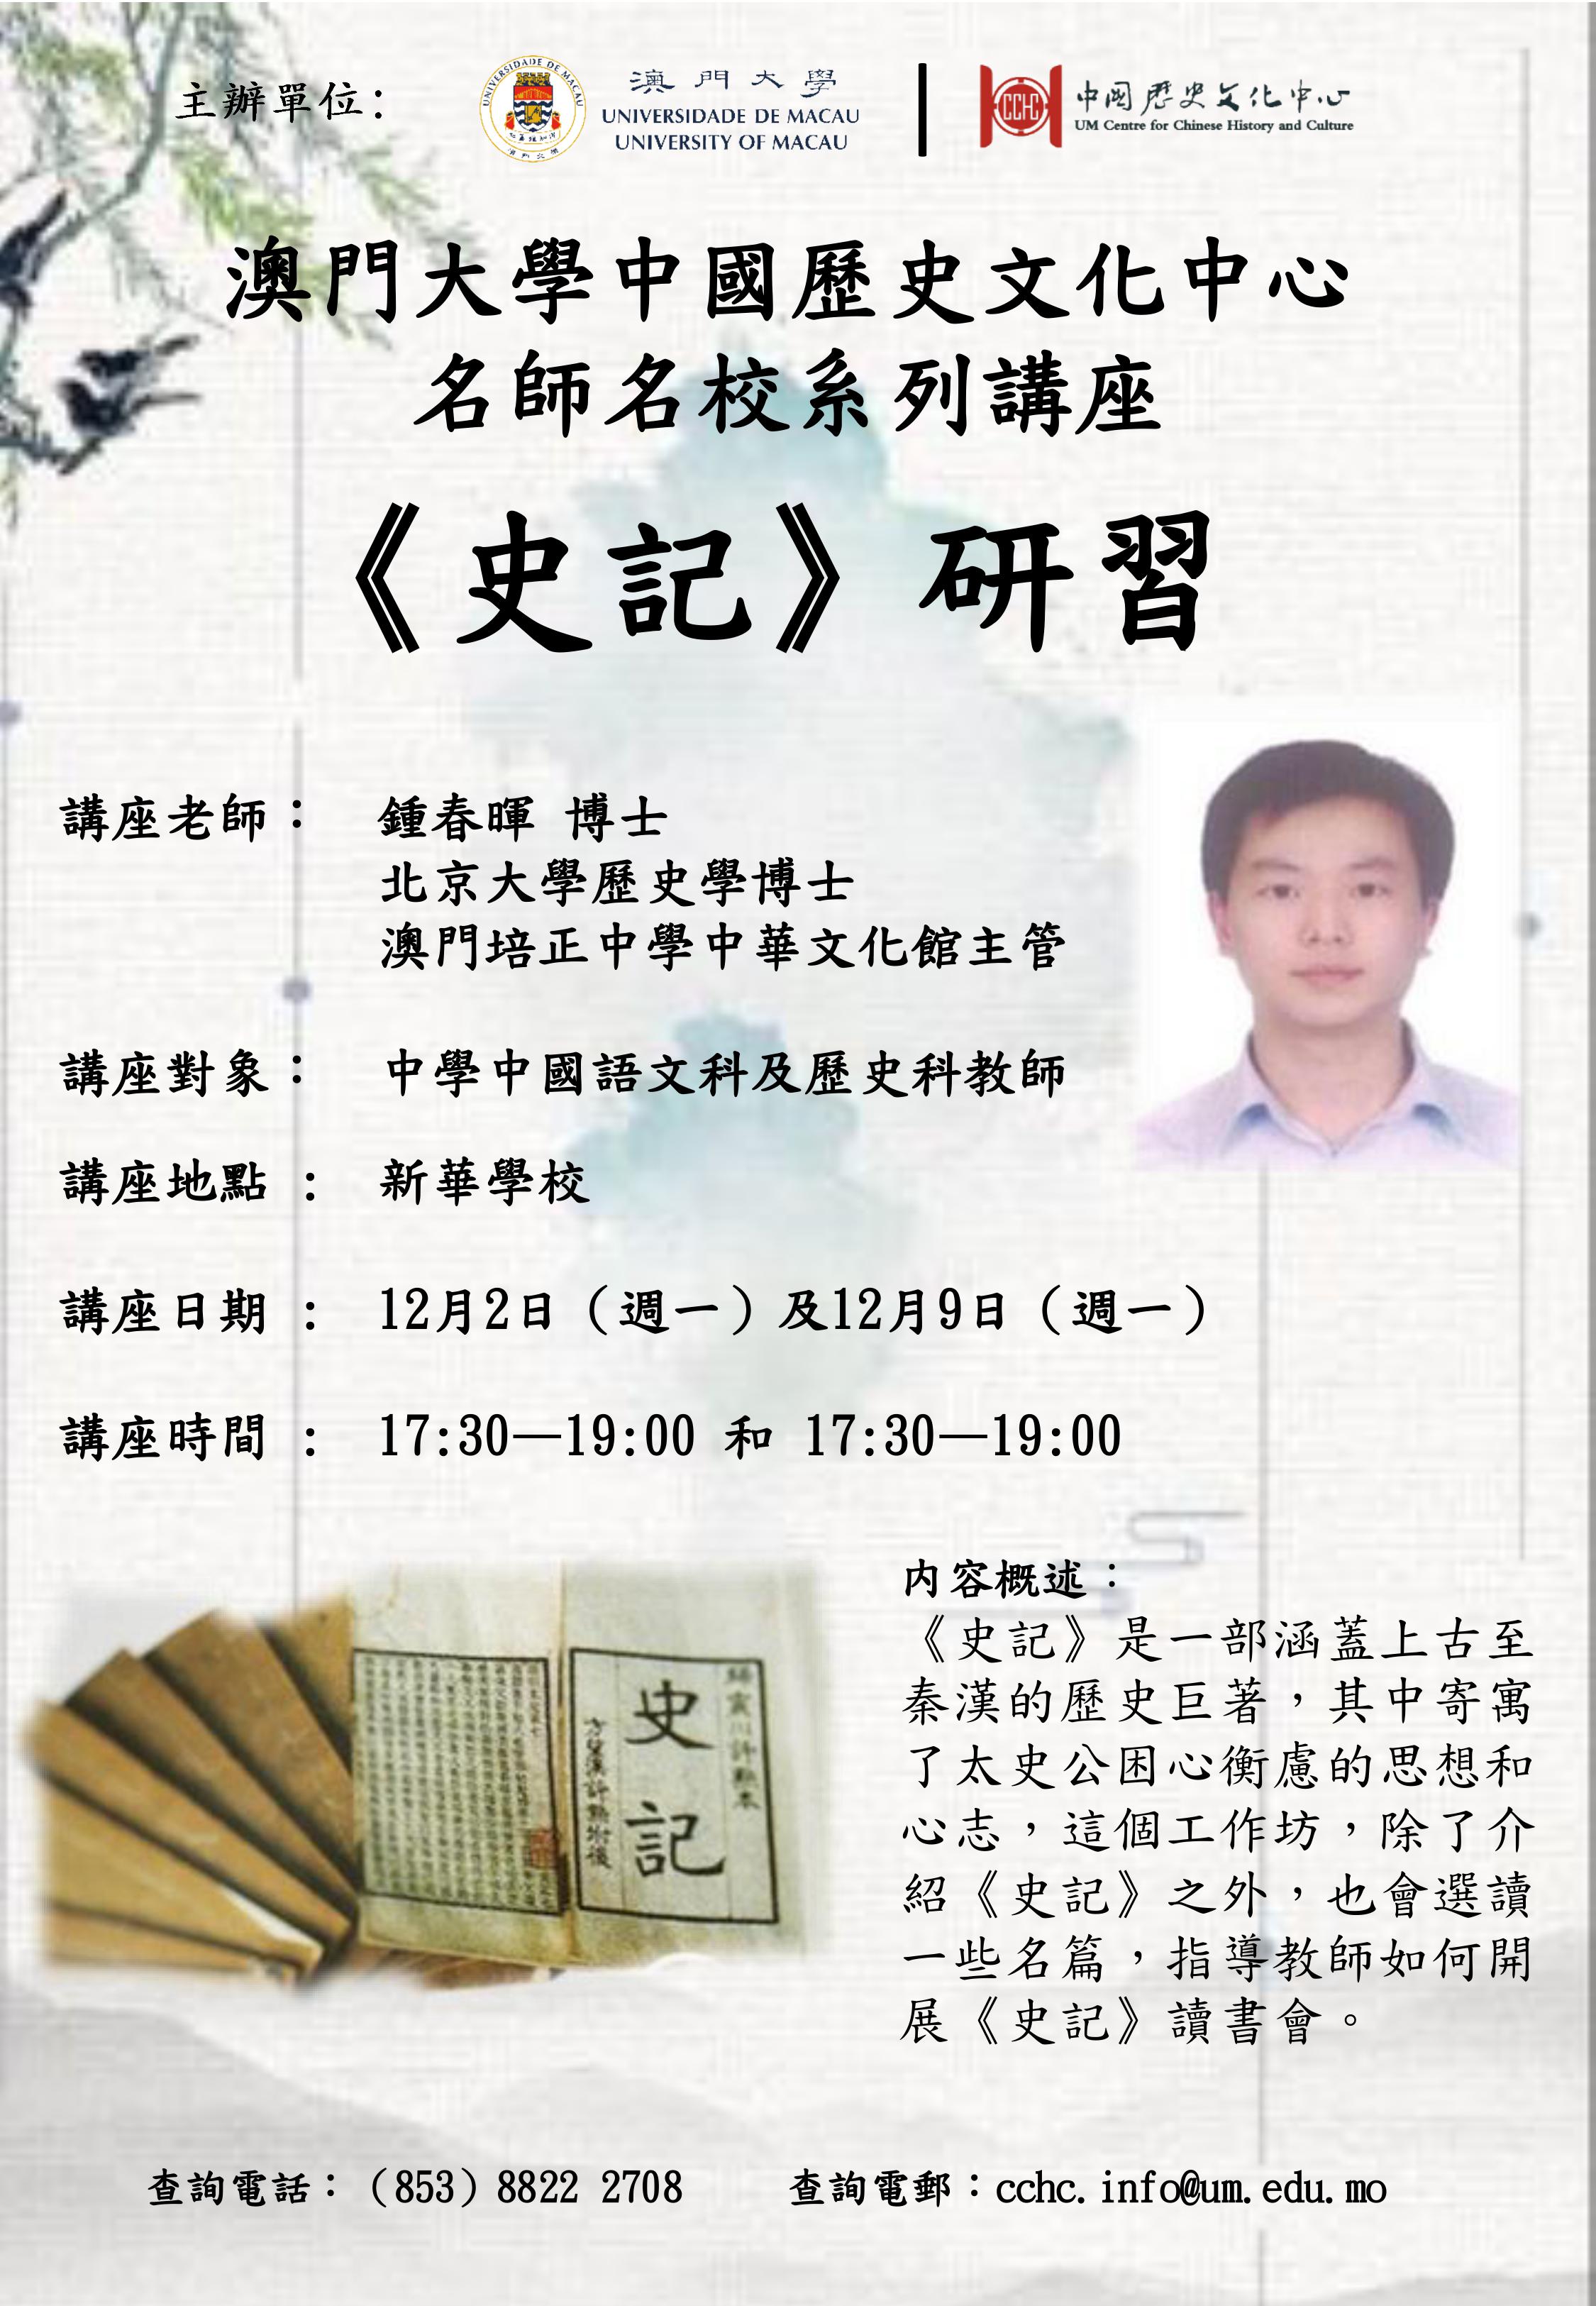 主辦單位：
UNIVERSIDADE DE MACAU
澳門大學
澳門大學
UNIVERSIDADE DE MACAU
UNIVERSITY OF MACAU
CCHC
中國歷史文化中心
UM Centre for Chinese History and Culture
澳門大學中國歷史文化中心
名師名校系列講座
《史記》研習
講座老師： 鍾春暉 博士
北京大學歷史學博士
澳門培正中學中華文化館主管
講座對象： 中學中國語文科及歷史科教師
講座地點： 新華學校
講座日期： 12月2日（週一）及12月9日（週一）
講座時間： 17:30—19:00 和 17:30—19:00
史記
內容概述：
《史記》是一部涵蓋上古至
秦漢的歷史巨著，其中寄寓
了太史公困心衡慮的思想和
心志，這個工作坊，除了介
紹《史記》之外，也會選讀
一些名篇，指導教師如何開
展《史記》讀書會。
查詢電話：（853）8822 2708
查詢電郵：cchc.info@um.edu.mo